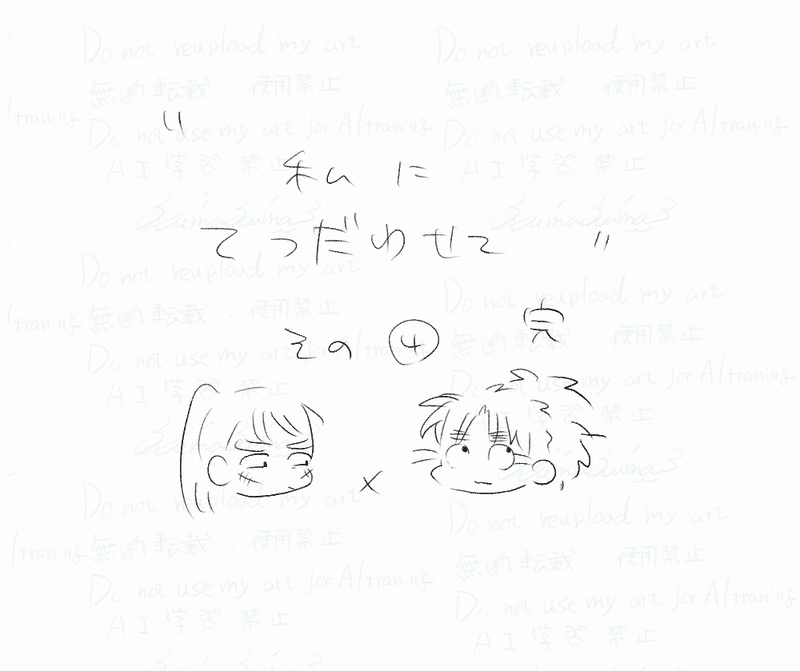 Do not reupload my art Do not reupload my art
無断転載、使用禁止 無断転載、使用禁止
/traning Do not use my art for AI/traning Do not use my art for AI/traning
AI学習禁止 AI学習禁止
"私に
てつだわせて"
Do not reupload my art Do not reupload my art
/traning 無断転載、使用禁止 無断転載、使用禁止
その④ 完
Do not use my art for AI/traning Do not use my art for AI/traning
AI学習禁止 AI学習禁止
×
Do not reupload my art Do not reupload my art
/traning 無断転載、使用禁止 無断転載、使用禁止
Do not use my art for AI/traning Do not use my art for AI/traning
AI学習禁止 AI学習禁止